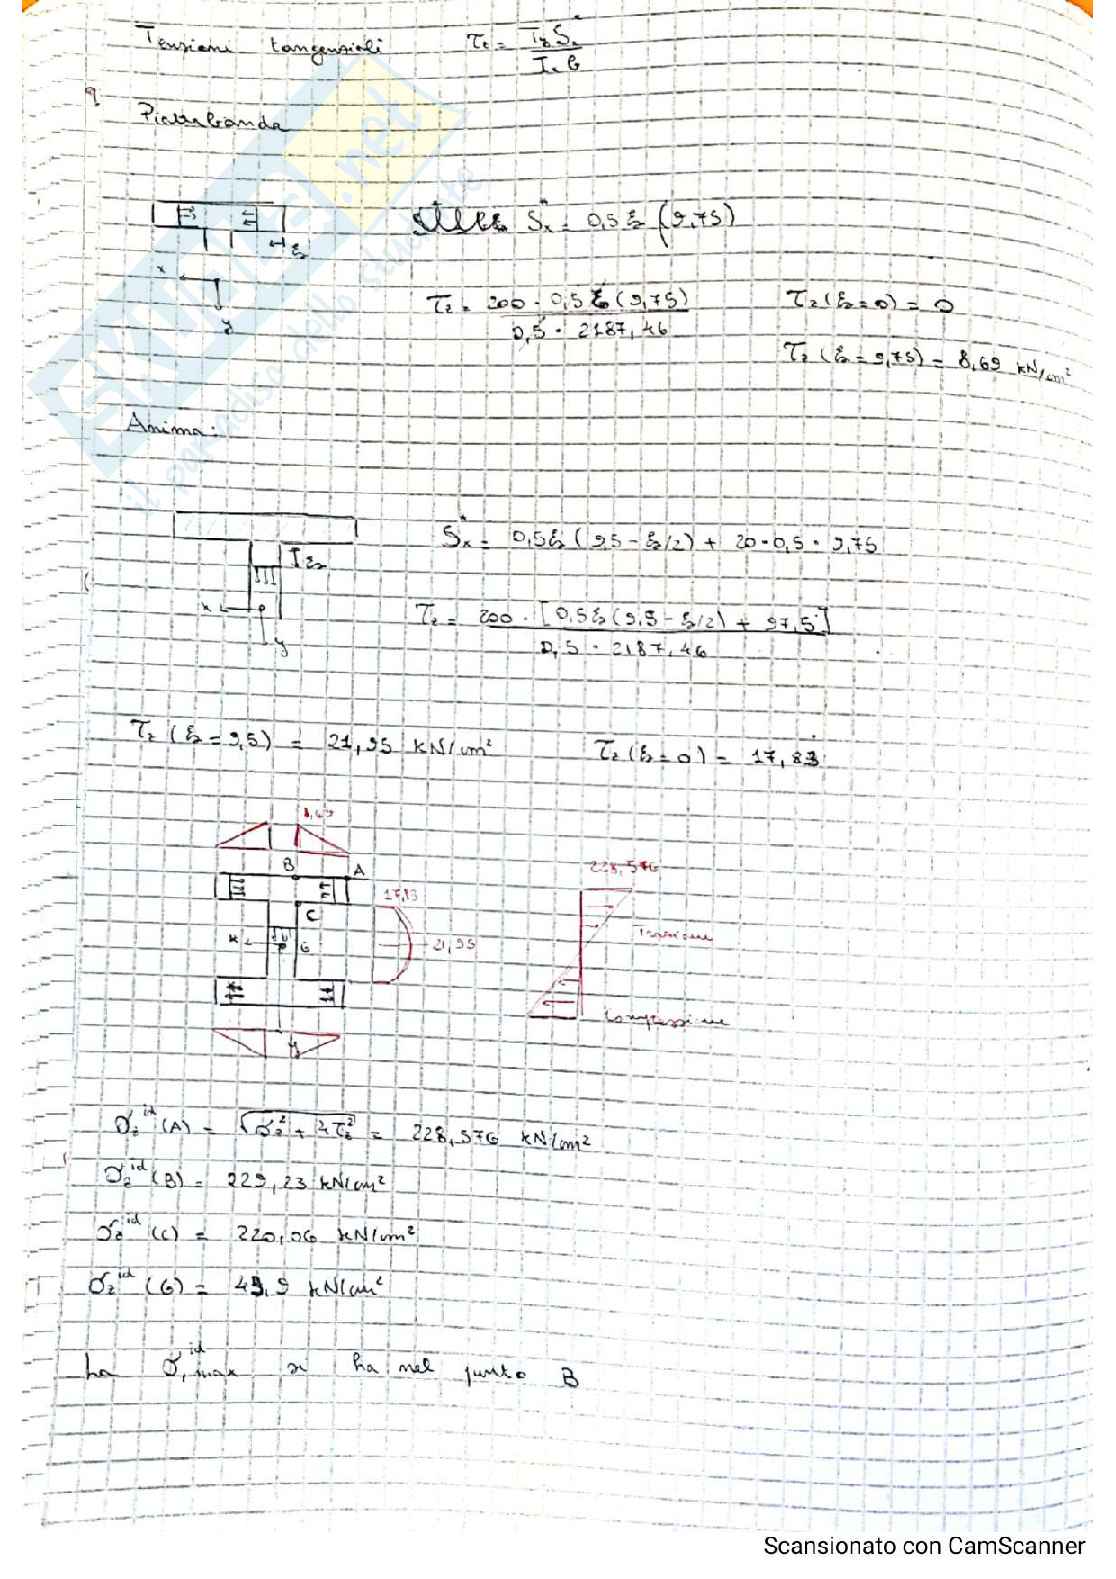 Tensioni tangenziali τz = Ty Sx* / Ix b
Piattabanda
Sx* = 0,5 ξ2 (9,75)
ξ2
x
y
τz = 200 · 0,5 ξ (9,75) / 0,5 · 2187,46
τz (ξ2=0) = 0
τz (ξ2 = 9,75) = 8,69 kN/cm²
Anima:
Sx* = 0,5ξ2 (9,5 - ξ2/2) + 20·0,5·9,75
ξ2
x
y
τz = 200 · [0,5ξ2 (9,5 - ξ2/2) + 97,5] / 0,5 · 2187,46
τz (ξ2 = 9,5) = 21,95 kN/cm² τz (ξ2=0) = 17,83
8,69
B A
228,576
17,83
C
x G
21,95
Trazione
Compressione
y
σz^id (A) = √σz² + 4τz² = 228,576 kN/cm²
σz^id (B) = 229,23 kN/cm²
σz^id (C) = 220,06 kN/cm²
σz^id (G) = 43,9 kN/cm²
La σ,max^id si ha nel punto B
SKUOLA.net
il paradiso dello studente
Scansionato con CamScanner